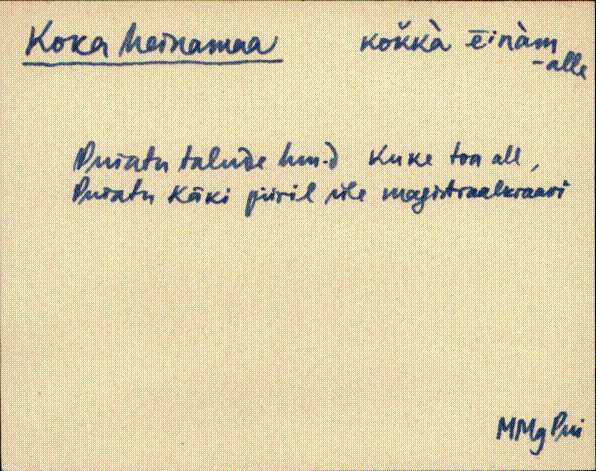 Koka heinamaa kok̆kà ēinàm
-alle
Puiatu talude hm-d Kuke toa all,
Puiatu Käki piiril üle magistraalkraavi
MMg Pui